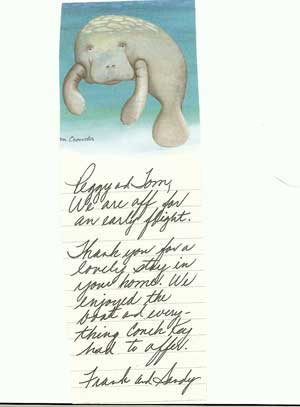 Peggy and Tom,
We are off for
an early flight.
Thank you for a
lovely stay in
your home. We
enjoyed the
boat and every-
thing Conch Key
had to offer.
Frank and Sandy